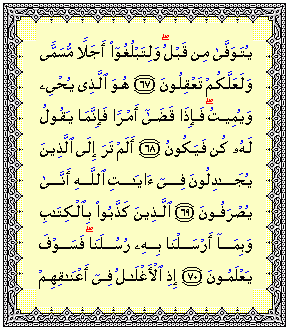 يُتَوَفَّىٰ مِن قَبْلُ ۖ وَلِتَبْلُغُوٓا۟ أَجَلًا مُّسَمًّى
وَلَعَلَّكُمْ تَعْقِلُونَ ﴿٦٧﴾ هُوَ ٱلَّذِى يُحْىِۦ
وَيُمِيتُ ۖ فَإِذَا قَضَىٰٓ أَمْرًا فَإِنَّمَا يَقُولُ
لَهُۥ كُن فَيَكُونُ ﴿٦٨﴾ أَلَمْ تَرَ إِلَى ٱلَّذِينَ
يُجَـٰدِلُونَ فِىٓ ءَايَـٰتِ ٱللَّهِ أَنَّىٰ
يُصْرَفُونَ ﴿٦٩﴾ ٱلَّذِينَ كَذَّبُوا۟ بِٱلْكِتَـٰبِ
وَبِمَآ أَرْسَلْنَا بِهِۦ رُسُلَنَا ۖ فَسَوْفَ
يَعْلَمُونَ ﴿٧٠﴾ إِذِ ٱلْأَغْلَـٰلُ فِىٓ أَعْنَـٰقِهِمْ